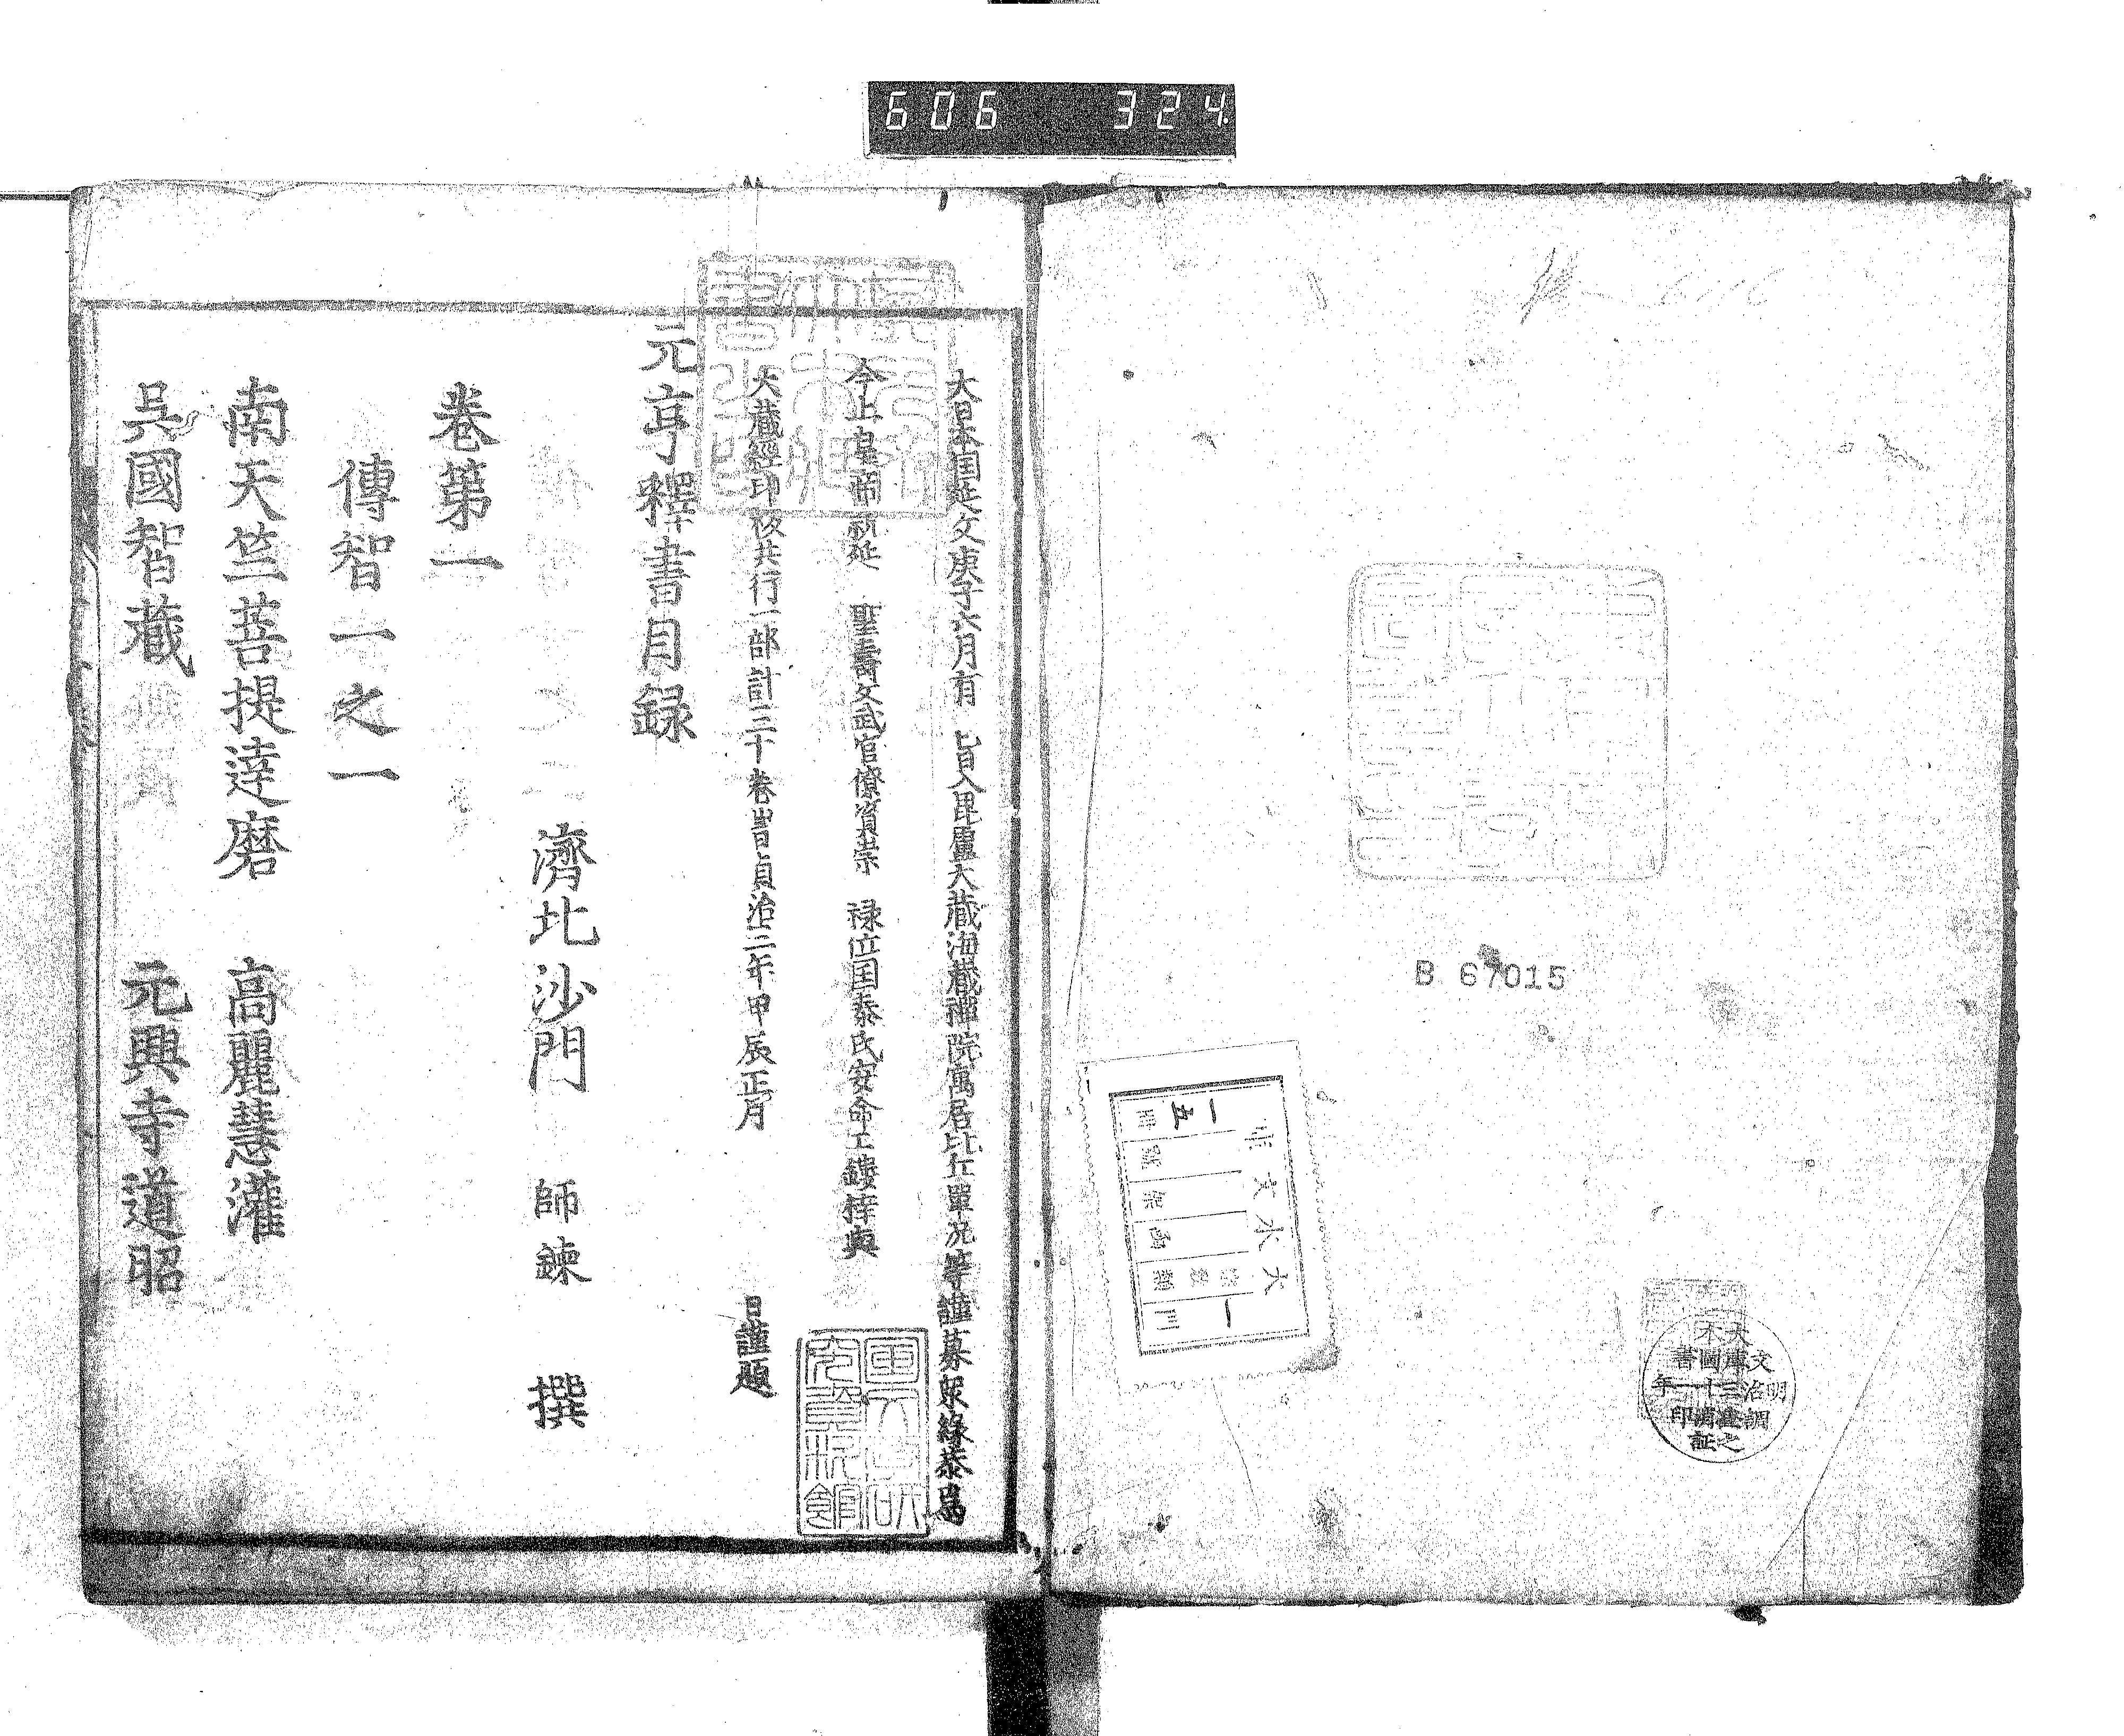 606 324
B 67015
大木
文庫圖書
明治三十一年
調査濟印
之証
大日本国延文庚子六月有　旨入毘盧大蔵海蔵禅院寓居比丘單況等謹募衆縁恭爲
今上皇帝祝延　聖壽文武官僚資崇　禄位国泰民安命工鏤梓與
大蔵經印板共行一部計三十卷旹貞治三年甲辰正月　日謹題
元亨釋書目録
濟北沙門　師錬　撰
卷第一
傳智一之一
南天竺菩提達磨　高麗慧灌
呉國智蔵　元興寺道昭